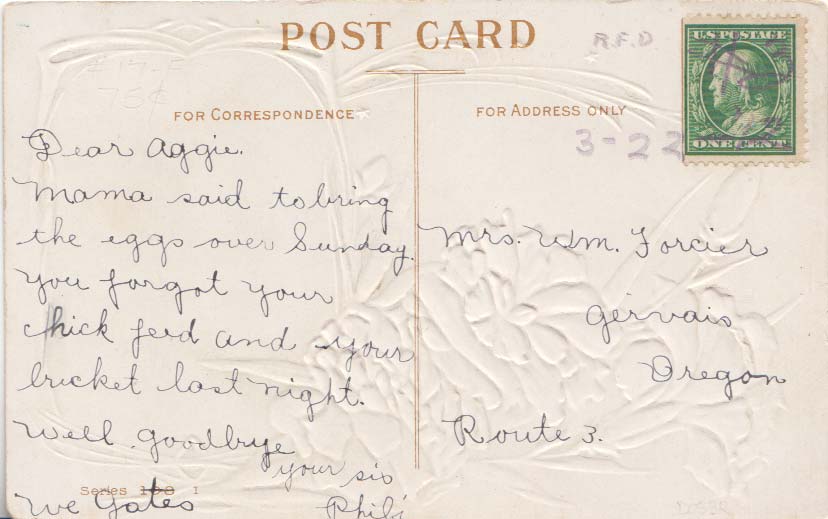 POST CARD
R.F.D
#17-F
75¢
U.S. POSTAGE
ONE CENT
FOR CORRESPONDENCE
FOR ADDRESS ONLY
3-22
Dear Aggie.
Mama said to bring
the eggs over Sunday.
You forgot your
chick feed and your
bricket last night.
Well goodbye
your sis
Series 100 I
Mrs. Wm. Forcier
Gervais
Oregon
Route 3.